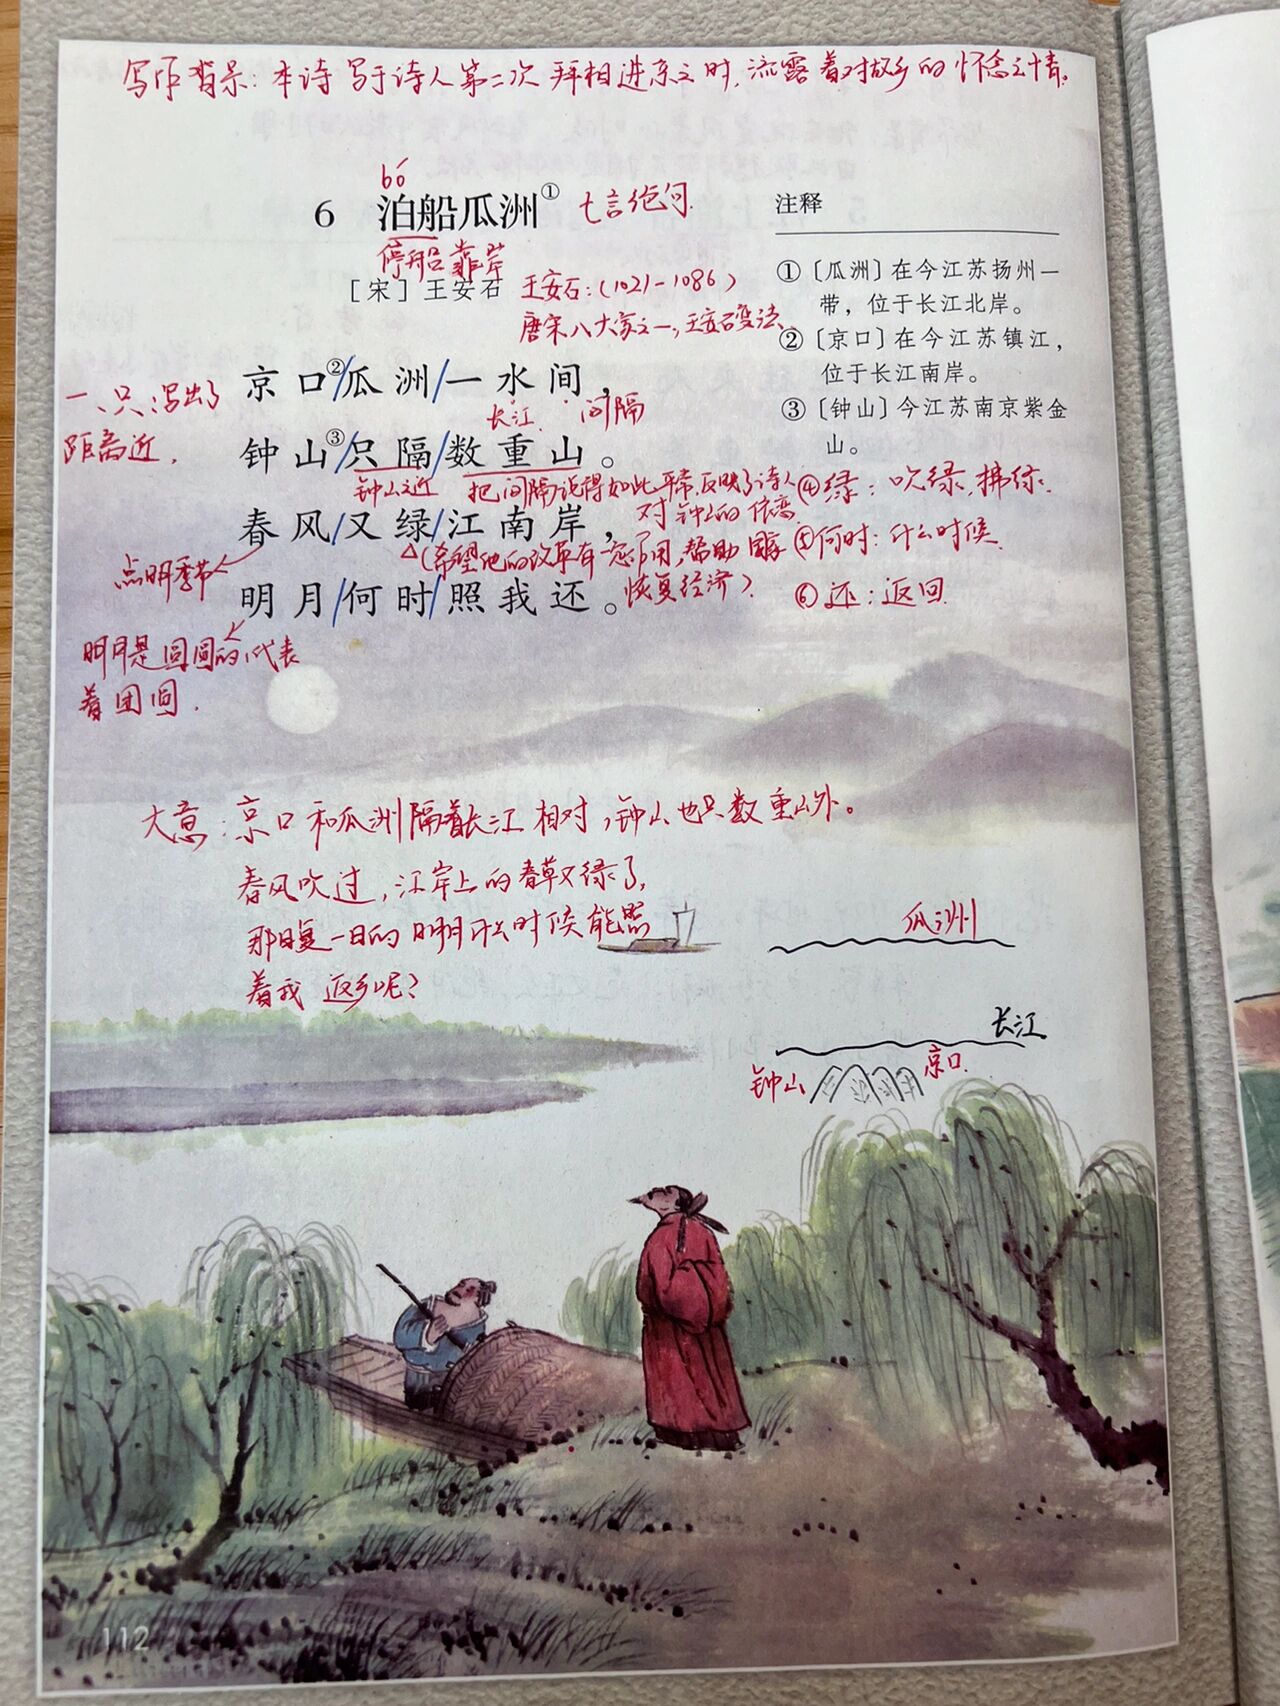 写作背景：本诗写于诗人第二次拜相进京之时，流露着对故乡的怀念之情。
bó
6 泊船瓜洲① 七言绝句.
停船靠岸
［宋］王安石 王安石：(1021-1086)
唐宋八大家之一，王安石变法、
京口②/瓜洲/一水间，
长江. 间隔
一、只：写出了
距离近.
钟山③/只隔/数重山。
钟山之近 把间隔说得如此平常，反映了诗人
对钟山的依恋
春风/又绿/江南岸，
(希望他的改革有一定作用，帮助国家
恢复经济)
点明季节
明月/何时/照我还。
明月是圆圆的代表
着团圆.
注释
①〔瓜洲〕在今江苏扬州一
带，位于长江北岸。
②〔京口〕在今江苏镇江，
位于长江南岸。
③〔钟山〕今江苏南京紫金
山。
④绿：吹绿，拂绿.
⑤何时：什么时候.
⑥还：返回
大意：京口和瓜洲隔着长江相对，钟山也只数重山外。
春风吹过，江岸上的春草又绿了，
那日复一日的明月什么时候能照
着我返乡呢？
瓜洲
长江
钟山 京口.
112